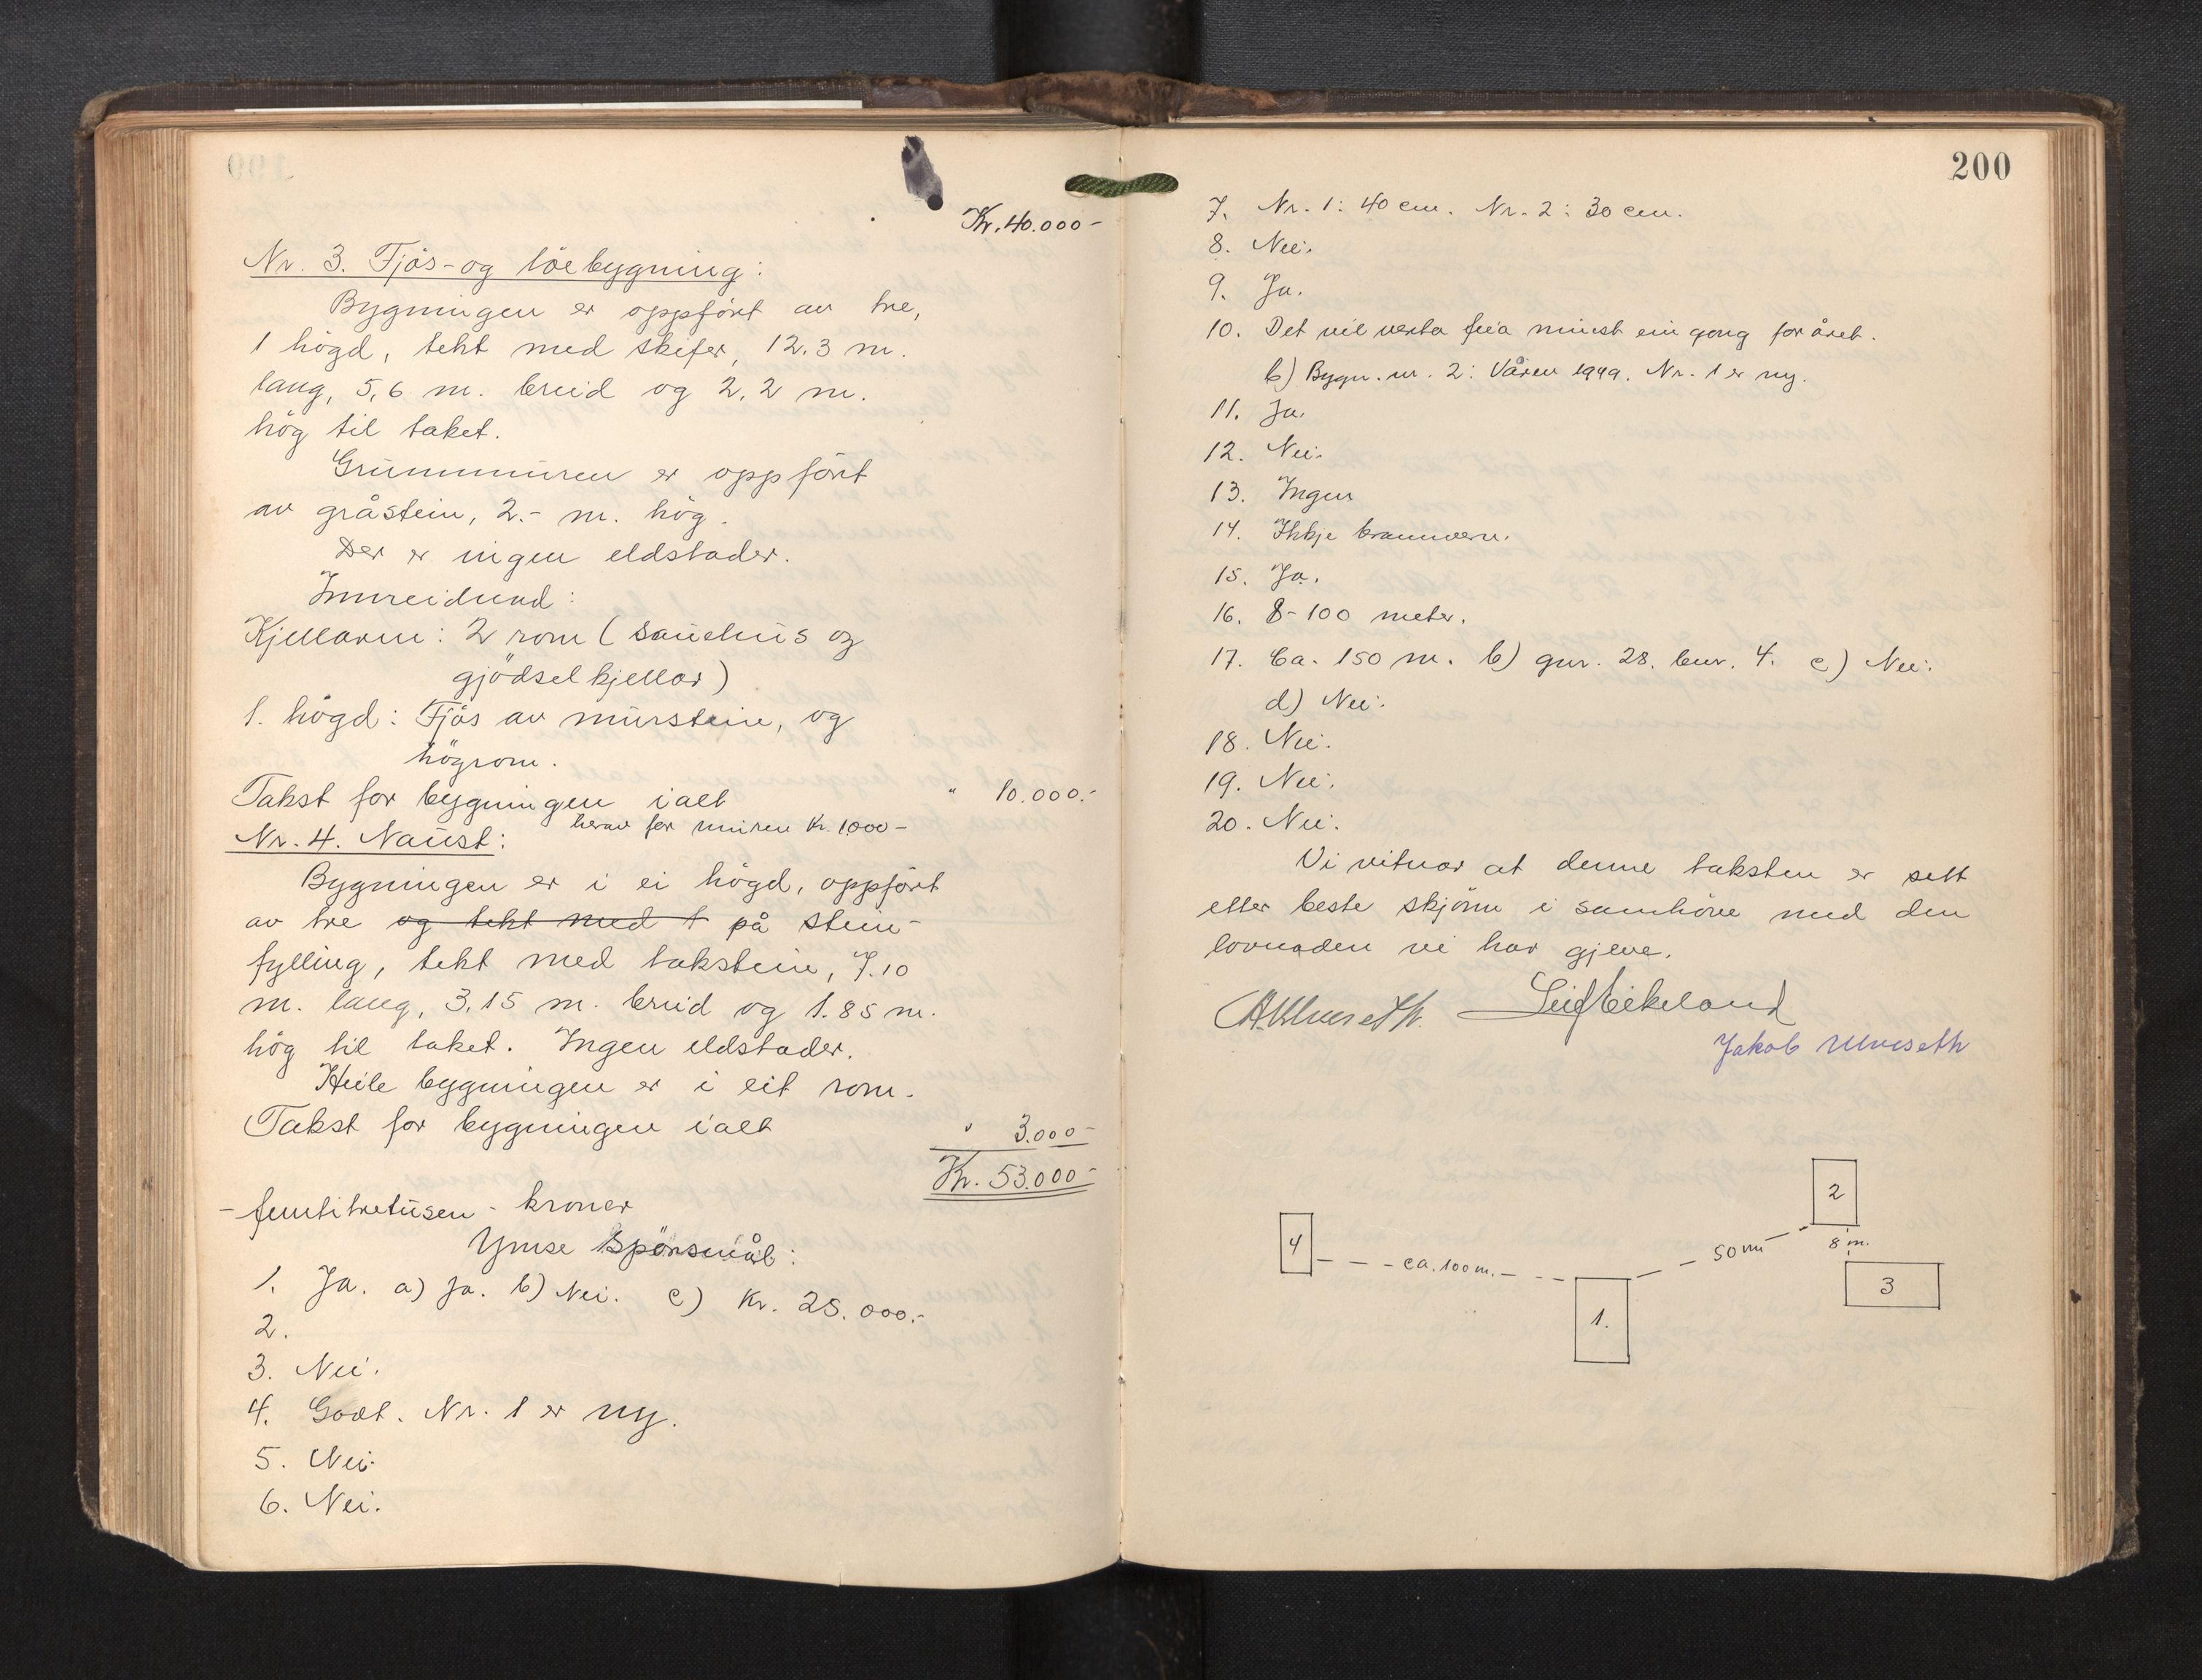 Kr. 40.000-
Nr. 3. Fjös- og löebygning:
Bygningen er oppfört av tre,
1 högd, tekt med skifer, 12.3 m.
lang, 5,6 m. breid og 2,2 m.
hög til taket.
Grunnmuren er oppfört
av gråstein, 2.- m. hög.
Der er ingen eldstader.
Innreidnad:
Kjellaren: 2 rom (sauehus og
gjödselkjellar)
1. högd: Fjös av murstein, og
högrom.
Takst for bygningen ialt " 10.000.-
herav for muren Kr. 1000-
Nr. 4. Naust:
Bygningen er i ei högd, oppfört
av tre og tekt med t på stein-
fylling, tekt med takstein, 7.10
m. lang, 3.15 m. breid og 1.85 m.
hög til taket. Ingen eldstader.
Heile bygningen er i eit rom.
Takst for bygningen ialt " 3.000-
Kr. 53.000-
- femtitretusen - kroner
Ymse spörsmål:
1. Ja. a) Ja. b) Nei. c) Kr. 25.000.-
2.
3. Nei.
4. Godt. Nr. 1 er ny.
5. Nei.
6. Nei.
200
7. Nr. 1: 40 cm. Nr. 2: 30 cm.
8. Nei.
9. Ja.
10. Det vil verta feia minst ein gong for året.
b) Bygn. nr. 2: Våren 1949. Nr. 1 er ny.
11. Ja.
12. Nei.
13. Ingen
14. Ikkje brannvern.
15. Ja.
16. 8-100 meter.
17. Ca. 150 m. b) gnr. 28. bnr. 4. c) Nei.
d) Nei.
18. Nei.
19. Nei.
20. Nei.
Vi vitnar at denne taksten er sett
etter beste skjönn i samhöve med den
lovnaden vi har gjeve.
Leif Eikeland
Jakob Ulveseth
2
8 m.
50 m
4
ca. 100 m.
3
1.